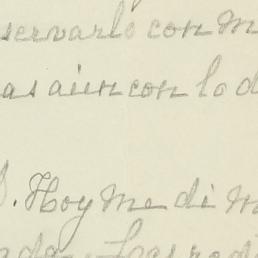 servarlo con m
as aun con lo d
. Hoy me di m